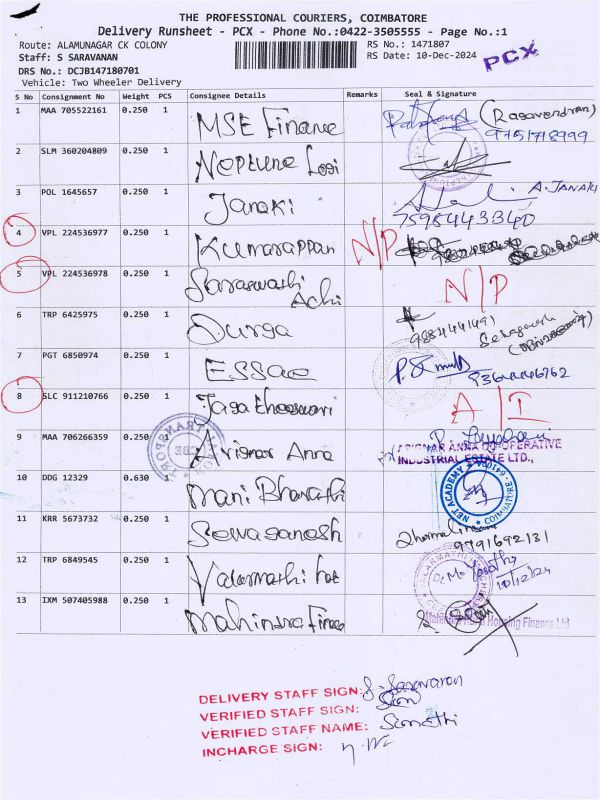 THE PROFESSIONAL COURIERS, COIMBATORE
Delivery Runsheet - PCX - Phone No.:0422-3505555 - Page No.:1
Route: ALAMUNAGAR CK COLONY
RS No.: 1471807
Staff: S SARAVANAN
RS Date: 10-Dec-2024
PCX
DRS No.: DCJB147180701
Vehicle: Two Wheeler Delivery
S No Consignment No Weight PCS Consignee Details Remarks Seal & Signature
1 MAA 705522161 0.250 1 MSE Finance (Ragavendran)
9751718999
2 SLM 360204809 0.250 1 Neptune Logi
3 POL 1645657 0.250 1 Janaki A. JANAKI
7598443340
4 VPL 224536977 0.250 1 Kumarappan N/P
5 VPL 224536978 0.250 1 Saraswathi Achi N/P
6 TRP 6425975 0.250 1 Durga
7 PGT 6850974 0.250 1 ESSae
8 SLC 911210766 0.250 1 A/I
9 MAA 706266359 0.250 Arignar Anna
ARIGNAR ANNA CO-OPERATIVE
INDUSTRIAL ESTATE LTD.,
10 DDG 12329 0.630 1 Mani Bharathi
NET ACADEMY COIMBATORE - 641004
11 KRR 5673732 0.250 1 Sewaganesh
9791692131
12 TRP 6849545 0.250 1
10/12/24
13 IXM 507405988 0.250 1 Mahindra Finac
Housing Finance Ltd
DELIVERY STAFF SIGN: S. Saravanan
VERIFIED STAFF SIGN:
VERIFIED STAFF NAME: Sumathi
INCHARGE SIGN: